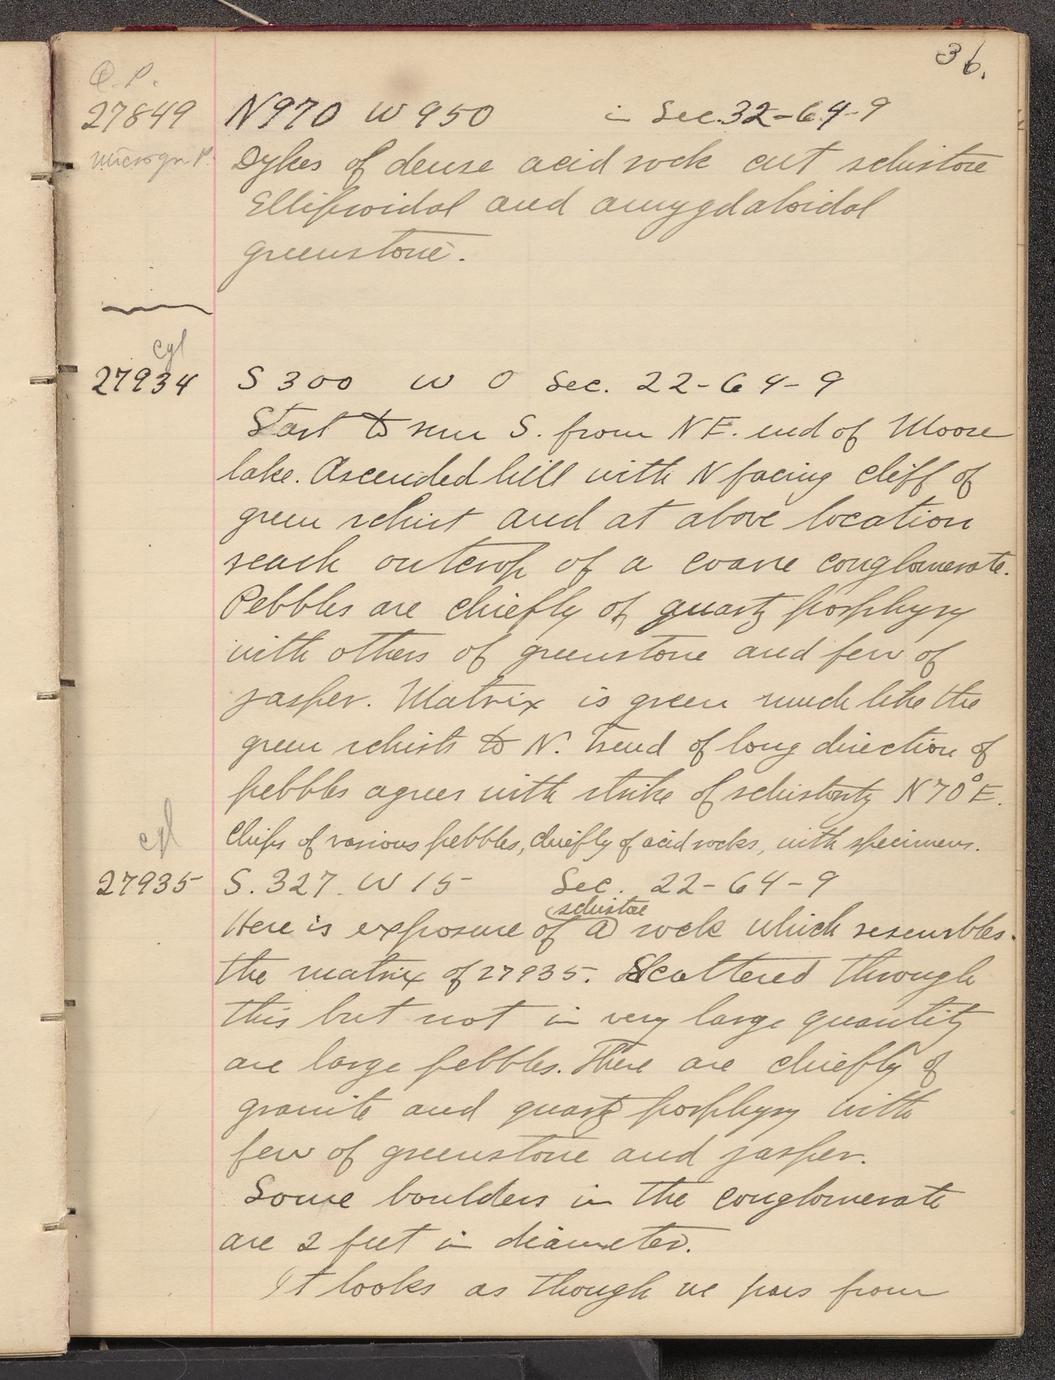 36.
Q. P.
27849 N970 W950 in Sec. 32-64-9
microgr. P. Dykes of dense acid rock cut schistose
Ellipsoidal and amygdaloidal
greenstone.
cgl
27934 S 300 W 0 Sec. 22-64-9
Start to run S. from NE. end of Moose
lake. Ascended hill with N facing cliff of
green schist and at above location
reach outcrop of a coarse conglomerate.
Pebbles are chiefly of quartz porphyry
with others of greenstone and few of
jasper. Matrix is green much like the
green schists to N. Trend of long direction of
pebbles agrees with strike of schistosity N70°E.
Chips of various pebbles, chiefly of acid rocks, with specimens.
cgl
27935 S. 327. W 15 Sec. 22-64-9
schistose
Here is exposure of a rock which resembles
the matrix of 27935. Scattered through
this but not in very large quantity
are large pebbles. These are chiefly of
granite and quartz porphyry with
few of greenstone and jasper.
Some boulders in the conglomerate
are 2 feet in diameter.
It looks as though we pass from